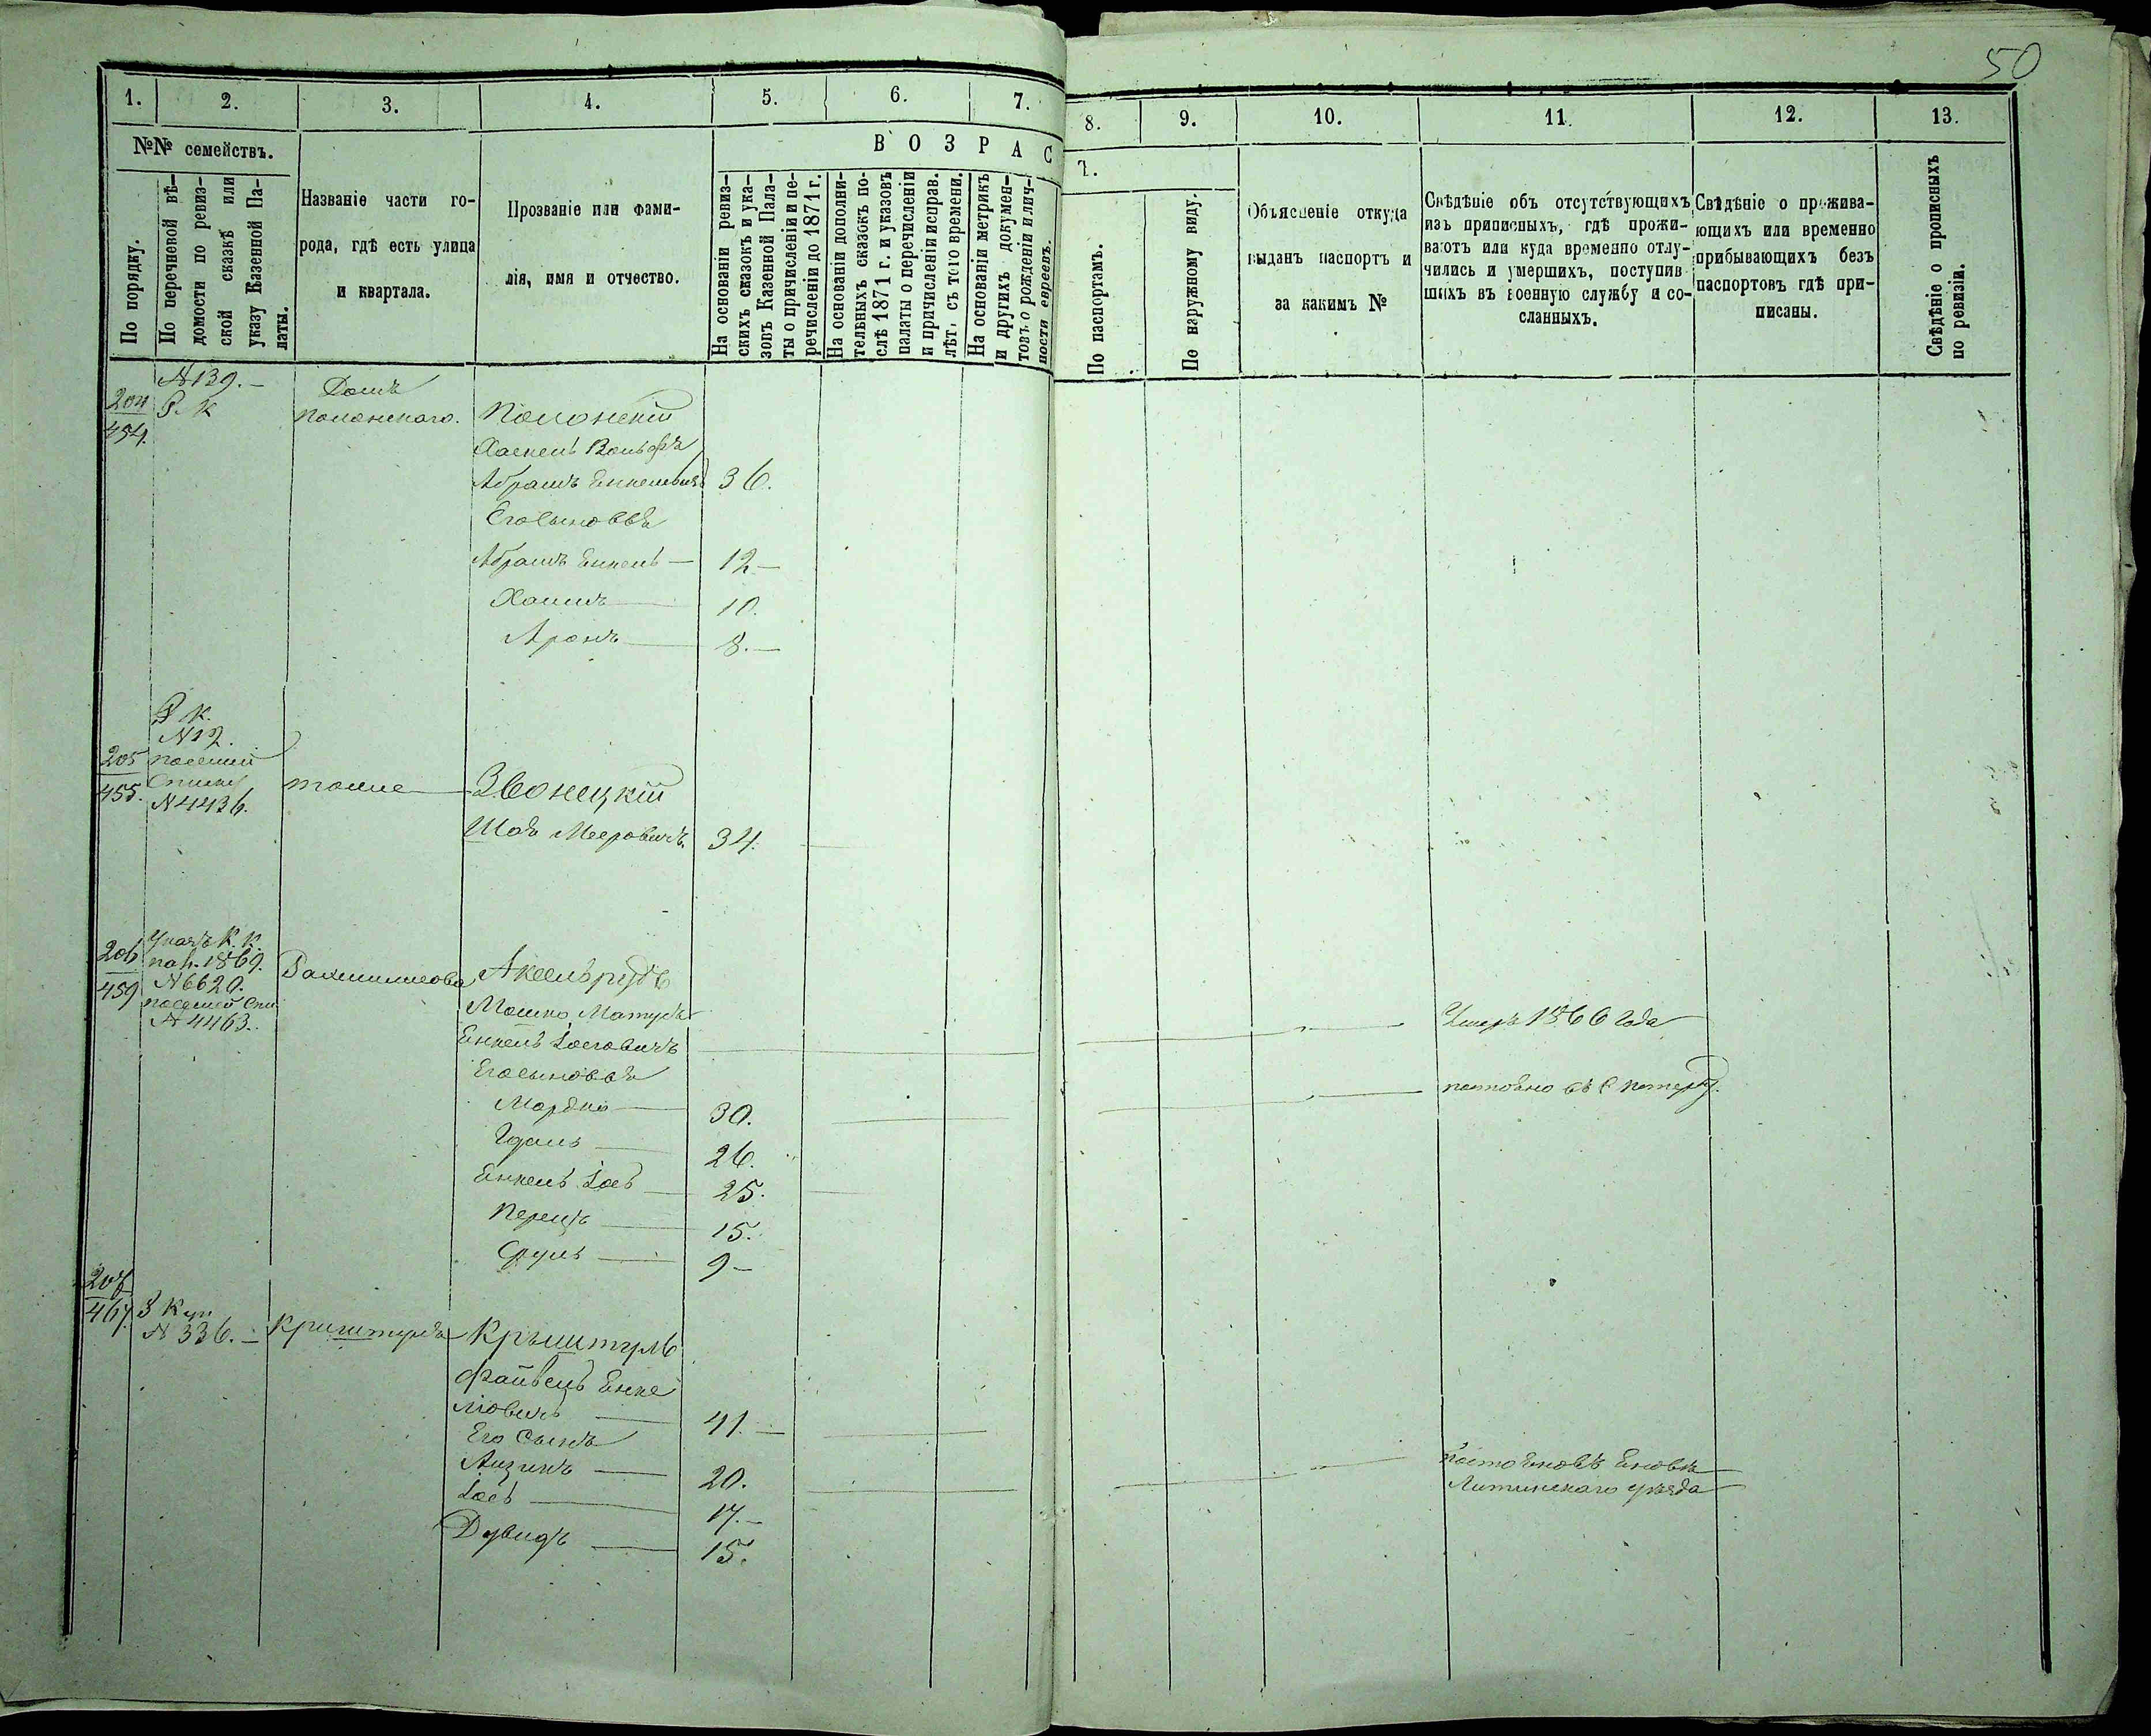 50
1. 2. 3. 4. 5. 6. 7. 8. 9. 10. 11. 12. 13.
№№ семействъ.
По порядку.
По перечневой вѣ-
домости по ревиз-
ской сказкѣ или
указу Казенной Па-
латы.
Названіе части го-
рода, гдѣ есть улица
и квартала.
Прозваніе или фами-
лія, имя и отчество.
В О З Р А С Т.
На основаніи ревиз-
скихъ сказокъ и ука-
зовъ Казенной Пала-
ты о причисленіи и пе-
речисленіи до 1871 г.
На основаніи дополни-
тельныхъ сказокъ по-
слѣ 1871 г. и указовъ
палаты о перечисленіи
и причисленіи исправ.
лѣт. съ того времени.
На основаніи метрикъ
и другихъ докумен-
товъ о рожденіи и лич-
ности евреевъ.
По паспортамъ.
По наружному виду.
Объясненіе откуда
выданъ паспортъ и
за какимъ №
Свѣдѣніе объ отсутствующихъ
изъ приписныхъ, гдѣ прожи-
ваютъ или куда временно отлу-
чились и умершихъ, поступив
шихъ въ военную службу и со-
сланныхъ.
Свѣдѣніе о прожива-
ющихъ или временно
прибывающихъ безъ
паспортовъ гдѣ при-
писаны.
Свѣдѣніе о прописныхъ
по ревизіи.
204
454.
№ 139.-
Р. К
Домъ
Полонскаго.
Полонскій
Хаскель Вольфъ
Абрамъ Енкелевичъ 36.
Его Сыновья
Абрамъ Енкель — 12 —
Хаимъ 10.
Аронъ 8. —
205
455.
К.
№ 12.
№ 4436.
тоже
Звонецкій
Шая Мееровичъ. 34.
206
459
Указъ К. К.
пол. 1869.
№ 6620.
№ 4463.
Аксельрудъ
Мошко Матусъ
Енкель Іосговичъ
Умеръ 1866 года
Его сыновья
Мордко 30.
Идель 26.
Енкель Іосъ 25.
Перецъ 15.
Сруль 9 —
207
467.
3 Куп
№ 336. —
Криштуля
Крыштуль
Файвель Енке
лювичъ 41. —
Его Сынъ
Айзикъ 20.
Іосъ 17. —
Дувидъ 15.
Литинскаго уѣзда